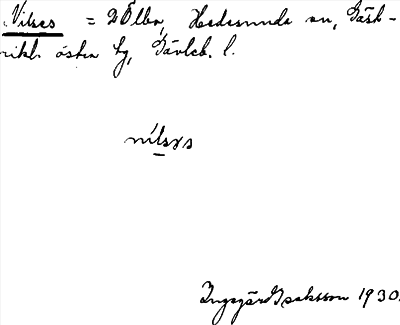 Nilses = 2 Ölbo, Hedesunda sn, Gäst-
rikl. östra tg, Gävleb. l.
nilsɤs
Ingegärd Isaksson 1930.